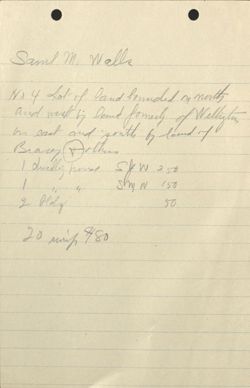 Saml M. Walls
No 4 Lot of land bounded on north
and west by land formerly of Wellington
on east and south by land of
Bracey & others
1 Dwelling house S M W 250
1 " " S M W 150
2 Bldg 50
20 $480